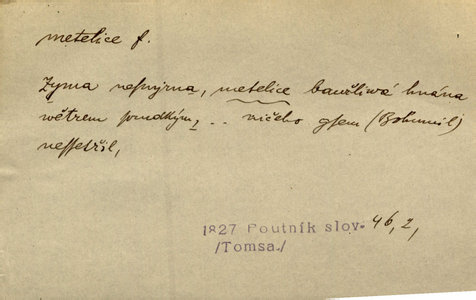 metelice f.
Zyma nesmjrna, metelice bauřliwá hnána
wětrem prudkým, .. ničeho gsem (Bohumil)
nessetřil,
1827 Poutník slov. 46, 2,
/Tomsa/